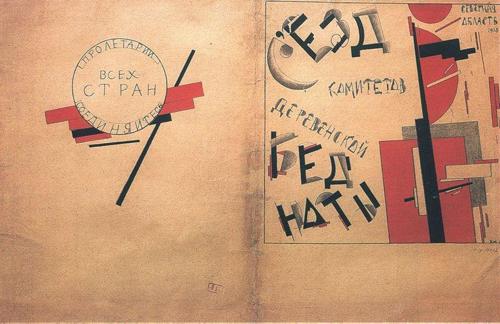 ПРОЛЕТАРИИ
ВСЕХ
СТРАН
СОЕДИНЯЙТЕСЬ
СЪЕЗД
КОМИТЕТОВ
ДЕРЕВЕНСКОЙ
БЕД
НОТЫ
СЕВЕРНАЯ
ОБЛАСТЬ
1918